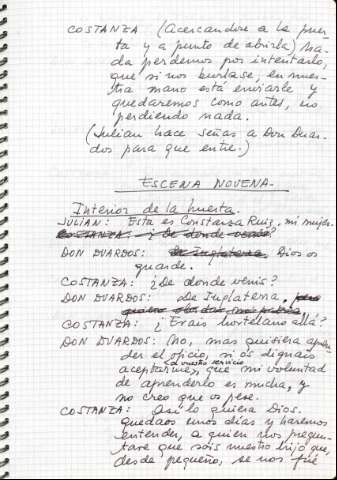 COSTANZA (Acercandose a la puer-
ta y a punto de abrirla) Na-
da perdemos por intentarlo,
que si nos burlase, en nues-
tra mano está enviarle y
quedaremos como antes, no
perdiendo nada.
(Julian hace señas a Don Duar-
dos para que entre.)
ESCENA NOVENA.-
Interior de la huerta.
JULIAN: Esta es Constanza Ruiz, mi mujer.
COSTANZA: ¿De donde venís?
DON DUARDOS: De Inglaterra, Dios os
guarde.
COSTANZA: ¿De donde venis?
DON DUARDOS: De Inglaterra, pero
quiero
COSTANZA: ¿Erais hortelano allá?
DON DUARDOS: No, mas quisiera apren-
der el oficio, si os dignais
a vuestro servicio
aceptarme, que mi voluntad
de aprenderlo es mucha, y
no creo que os pese.
COSTANZA: Así lo quiera Dios.
quedaos unos días y haremos
entender, a quien nos pregun-
tare que sois nuestro hijo que,
desde pequeño, se nos fué